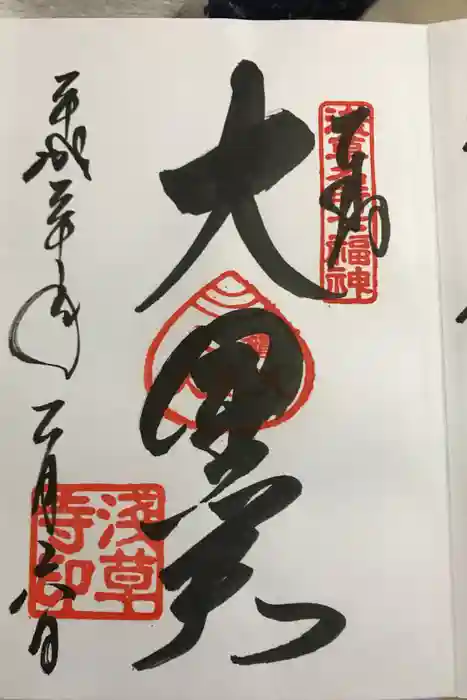 奉拝
浅草名所七福神
大黒天
平成三十年二月六日
浅草寺印